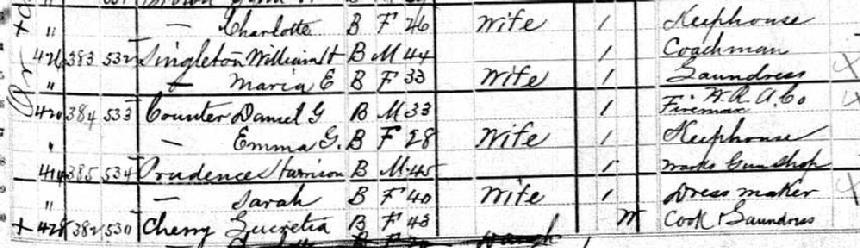 " Charlotte B F 26 Wife 1 Keephouse
426 383 532 Singleton William H B M 44 1 Coachman
" — Maria E B F 33 Wife 1 Laundress X
420 384 533 Counter Daniel G B M 33 1 Fireman W. R. A. Co
" — Emma G. B F 28 Wife 1 Keephouse
414 385 534 Prudence Harrison B M 45 1 Works Gun Shop
" — Sarah B F 40 Wife 1 Dress maker
+ 428 382 530 Cherry Lucretia B F 43 W Cook Laundress